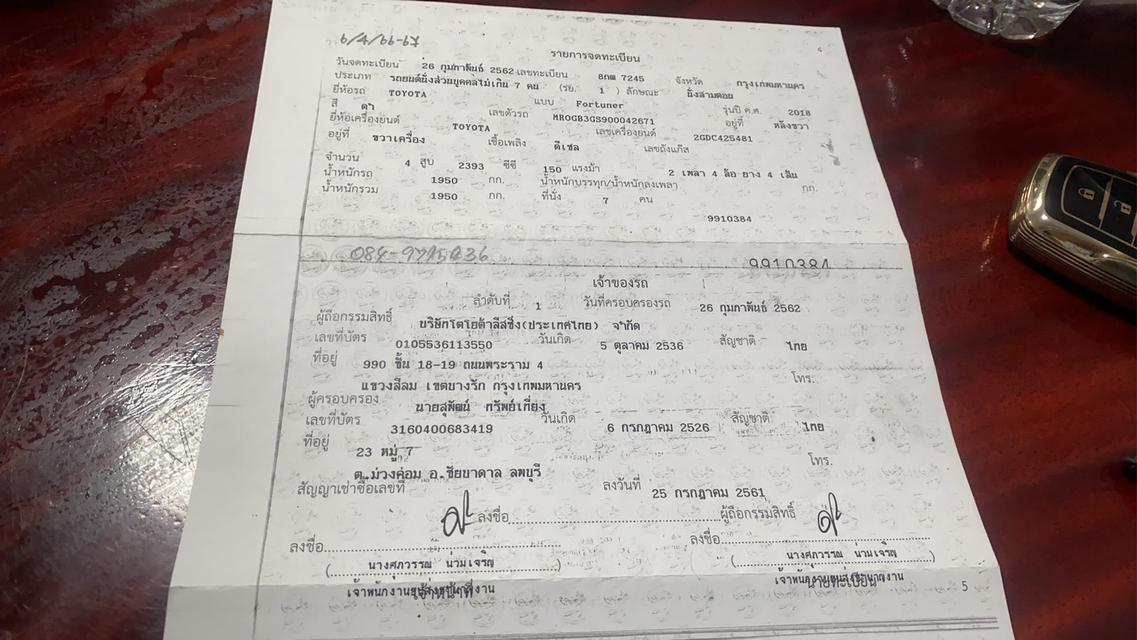 6/4/66-67
4
รายการจดทะเบียน
วันจดทะเบียน 26 กุมภาพันธ์ 2562 เลขทะเบียน 8กผ 7245 จังหวัด กรุงเทพมหานคร
ประเภท รถยนต์นั่งส่วนบุคคลไม่เกิน 7 คน (รย. 1 ) ลักษณะ นั่งสามตอน
ยี่ห้อรถ TOYOTA แบบ Fortuner รุ่นปี ค.ศ. 2018
สี ดำ เลขตัวรถ MR0GB3GS900042671 อยู่ที่ หลังขวา
ยี่ห้อเครื่องยนต์ TOYOTA เลขเครื่องยนต์ 2GDC425481
อยู่ที่ ขวาเครื่อง เชื้อเพลิง ดีเซล เลขถังแก๊ส
จำนวน 4 สูบ 2393 ซีซี 150 แรงม้า 2 เพลา 4 ล้อ ยาง 4 เส้น
น้ำหนักรถ 1950 กก. น้ำหนักบรรทุก/น้ำหนักลงเพลา กก.
น้ำหนักรวม 1950 กก. ที่นั่ง 7 คน
9910384
9910384
เจ้าของรถ
ลำดับที่ 1 วันที่ครอบครองรถ 26 กุมภาพันธ์ 2562
ผู้ถือกรรมสิทธิ์ บริษัทโตโยต้าลีสซิ่ง(ประเทศไทย) จำกัด
เลขที่บัตร 0105536113550 วันเกิด 5 ตุลาคม 2536 สัญชาติ ไทย
ที่อยู่ 990 ชั้น 18-19 ถนนพระราม 4
แขวงสีลม เขตบางรัก กรุงเทพมหานคร โทร.
ผู้ครอบครอง นายสุพัฒน์ ทรัพย์เกี่ยง
เลขที่บัตร 3160400683419 วันเกิด 6 กรกฎาคม 2526 สัญชาติ ไทย
ที่อยู่ 23 หมู่ 7
ต.ม่วงค่อม อ.ชัยบาดาล ลพบุรี โทร.
สัญญาเช่าซื้อเลขที่ ลงวันที่ 25 กรกฎาคม 2561
ลงชื่อ ผู้ถือกรรมสิทธิ์
ลงชื่อ ลงชื่อ
(นางศุภวรรณ น่วมเจริญ) (นางศุภวรรณ น่วมเจริญ)
5